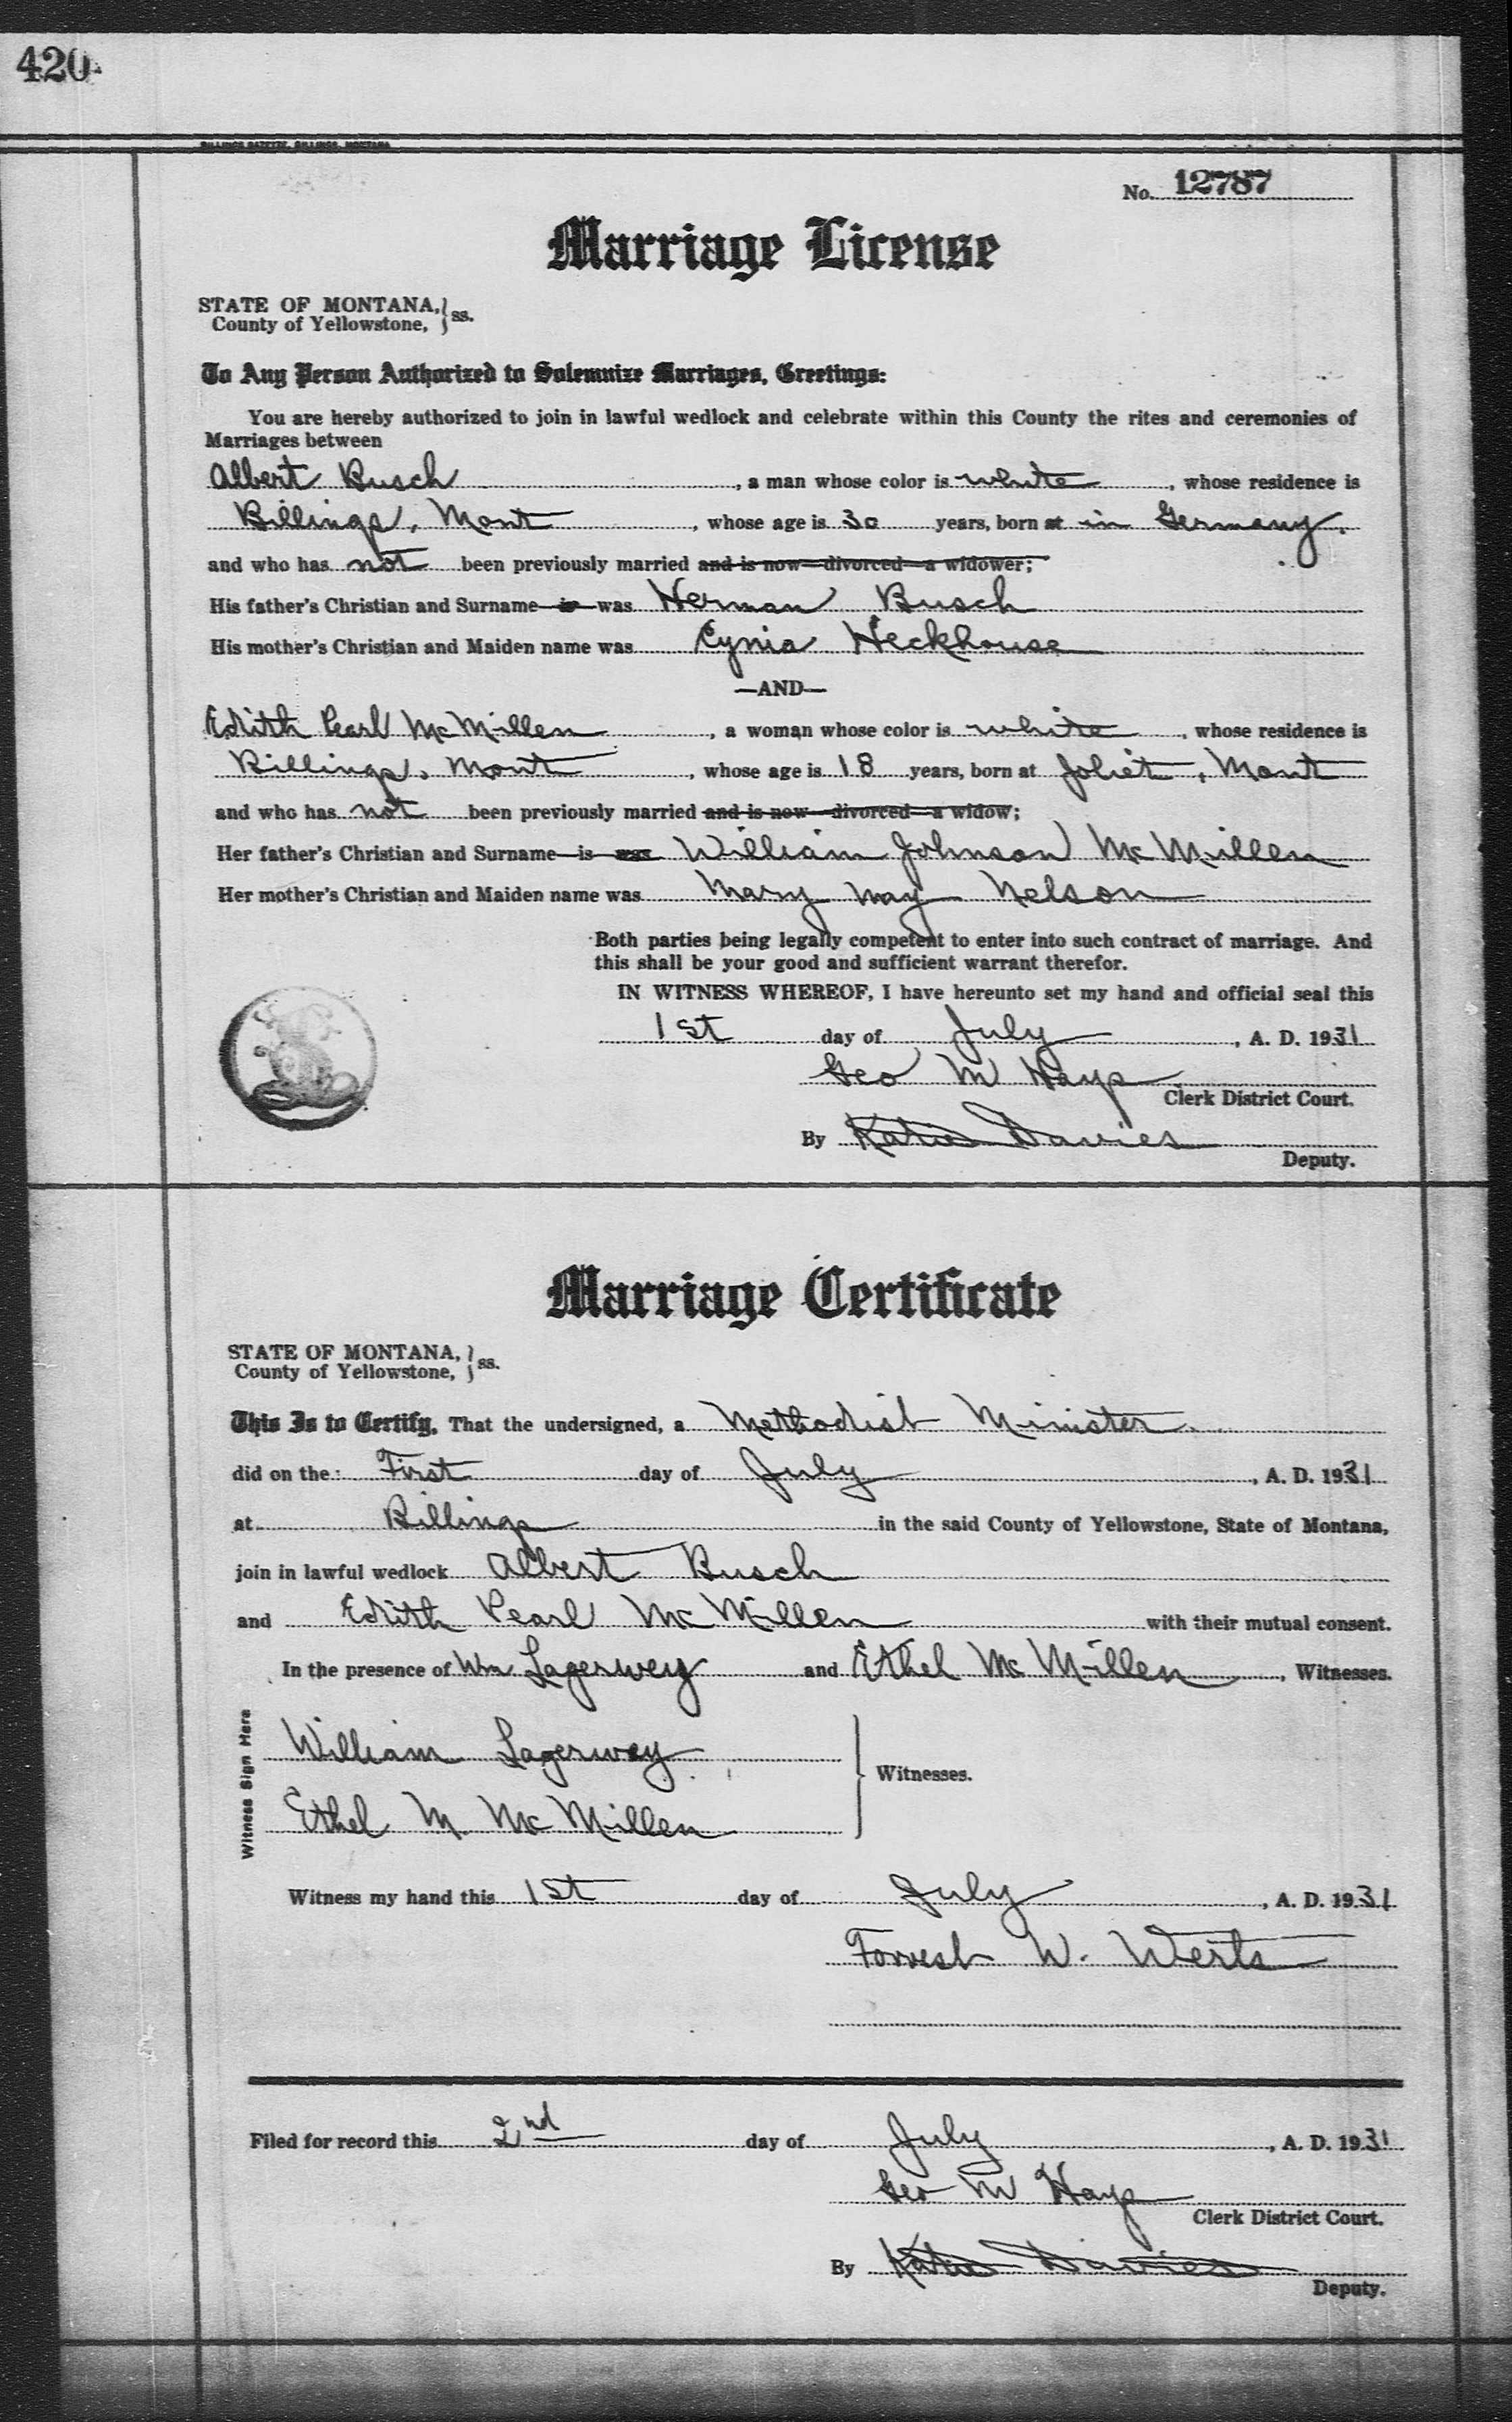 420
BILLINGS GAZETTE, BILLINGS, MONTANA
No. 12787
Marriage License
STATE OF MONTANA, } ss.
County of Yellowstone,
To Any Person Authorized to Solemnize Marriages, Greetings:
You are hereby authorized to join in lawful wedlock and celebrate within this County the rites and ceremonies of
Marriages between
Albert Busch, a man whose color is white, whose residence is
Billings, Mont, whose age is 30 years, born at in Germany.
and who has not been previously married and is now—divorced—a widower;
His father's Christian and Surname—is—was Herman Busch
His mother's Christian and Maiden name was Cynia Heckhouse
—AND—
Edith Pearl McMillen, a woman whose color is white, whose residence is
Billings, Mont, whose age is 18 years, born at Joliet, Mont
and who has not been previously married and is now—divorced—a widow;
Her father's Christian and Surname—is—was William Johnson McMillen
Her mother's Christian and Maiden name was Mary May Nelson
Both parties being legally competent to enter into such contract of marriage. And
this shall be your good and sufficient warrant therefor.
IN WITNESS WHEREOF, I have hereunto set my hand and official seal this
1st day of July, A. D. 1931
Geo M Hays
Clerk District Court.
By Katie Davies
Deputy.
Marriage Certificate
STATE OF MONTANA, } ss.
County of Yellowstone,
This Is to Certify, That the undersigned, a Methodist Minister.
did on the First day of July, A. D. 1931
at Billings in the said County of Yellowstone, State of Montana,
join in lawful wedlock Albert Busch
and Edith Pearl McMillen with their mutual consent.
In the presence of Wm Lagerwey and Ethel McMillen, Witnesses.
Witness Sign Here
William Lagerwey
Witnesses.
Ethel M. McMillen
Witness my hand this 1st day of July, A. D. 1931
Forrest W. Werts
Filed for record this 2nd day of July, A. D. 1931
Geo M Hays
Clerk District Court.
By Katie Davies
Deputy.